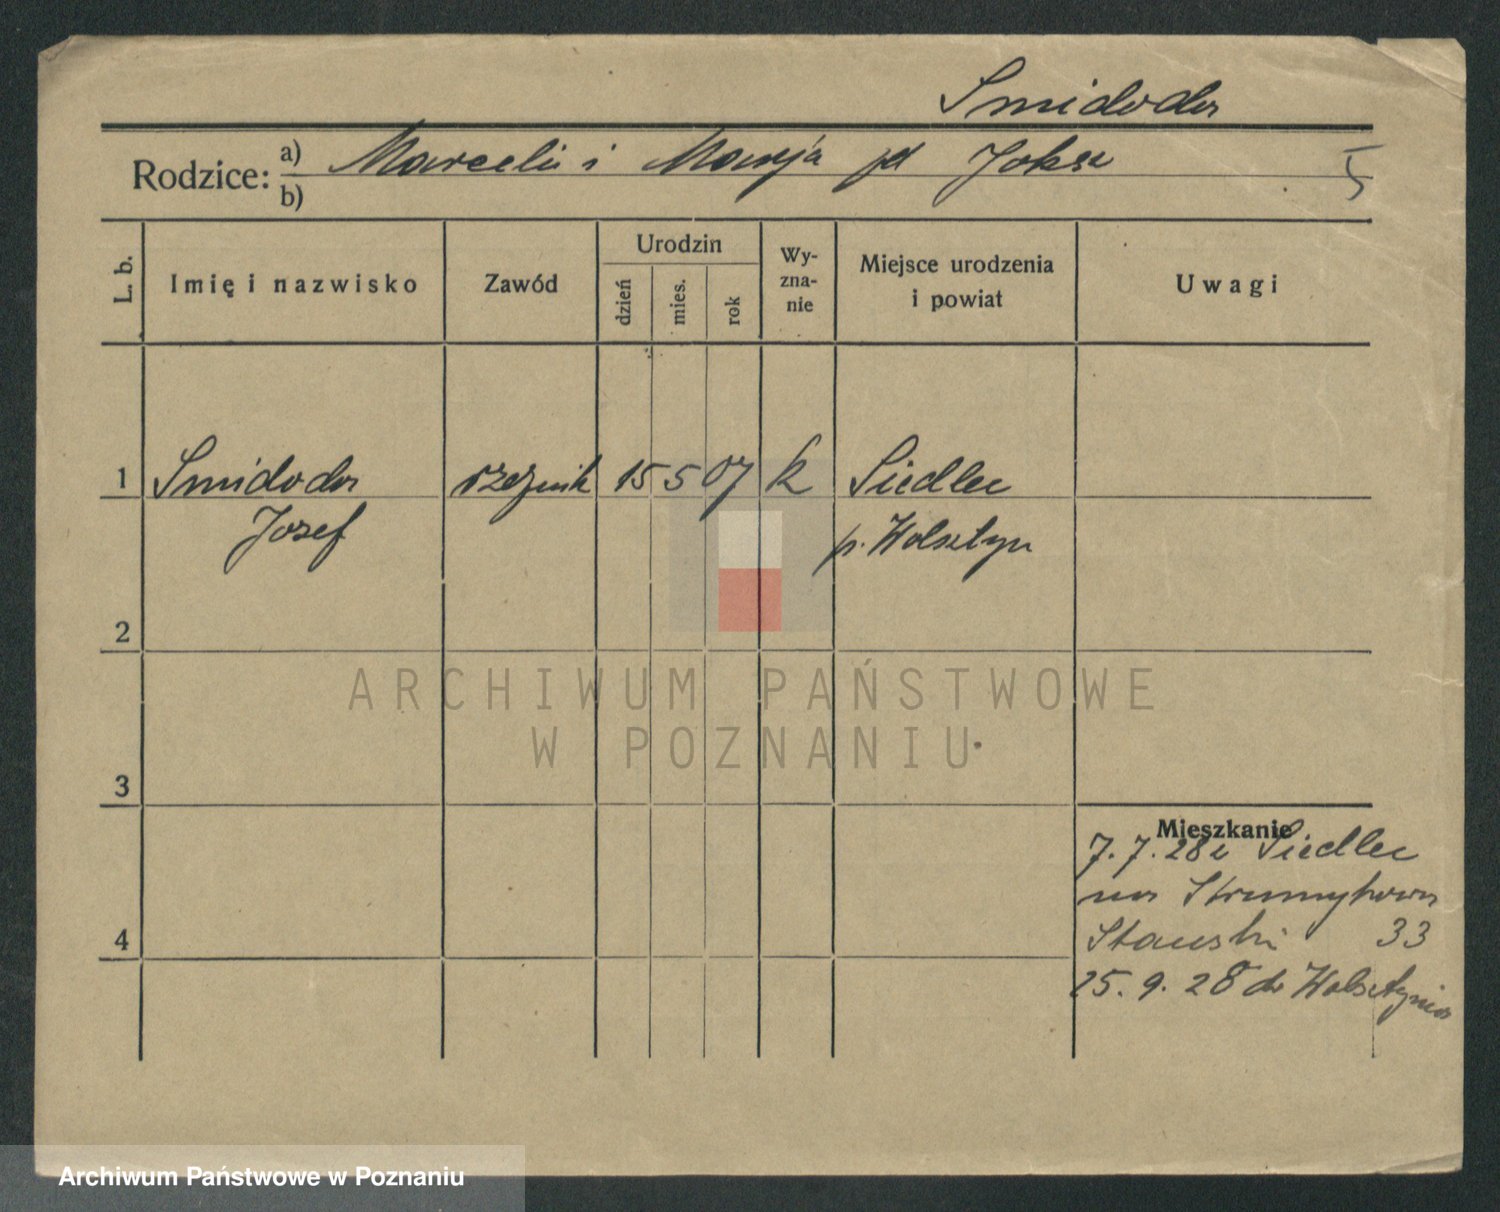 Smidoda
Rodzice: a) Marceli i Marja
b)
5
L. b.
Imię i nazwisko
Zawód
Urodzin
dzień
mies.
rok
Wy-
zna-
nie
Miejsce urodzenia
i powiat
Uwagi
1 Smidoda rzeźnik 15 5 07 k Siedlec
Józef p. Wolsztyn
2
3
4
Mieszkanie
7. 7. 28 z Siedlec
na
33
25. 9. 28 do Wolsztyna
ARCHIWUM PAŃSTWOWE
W POZNANIU
Archiwum Państwowe w Poznaniu